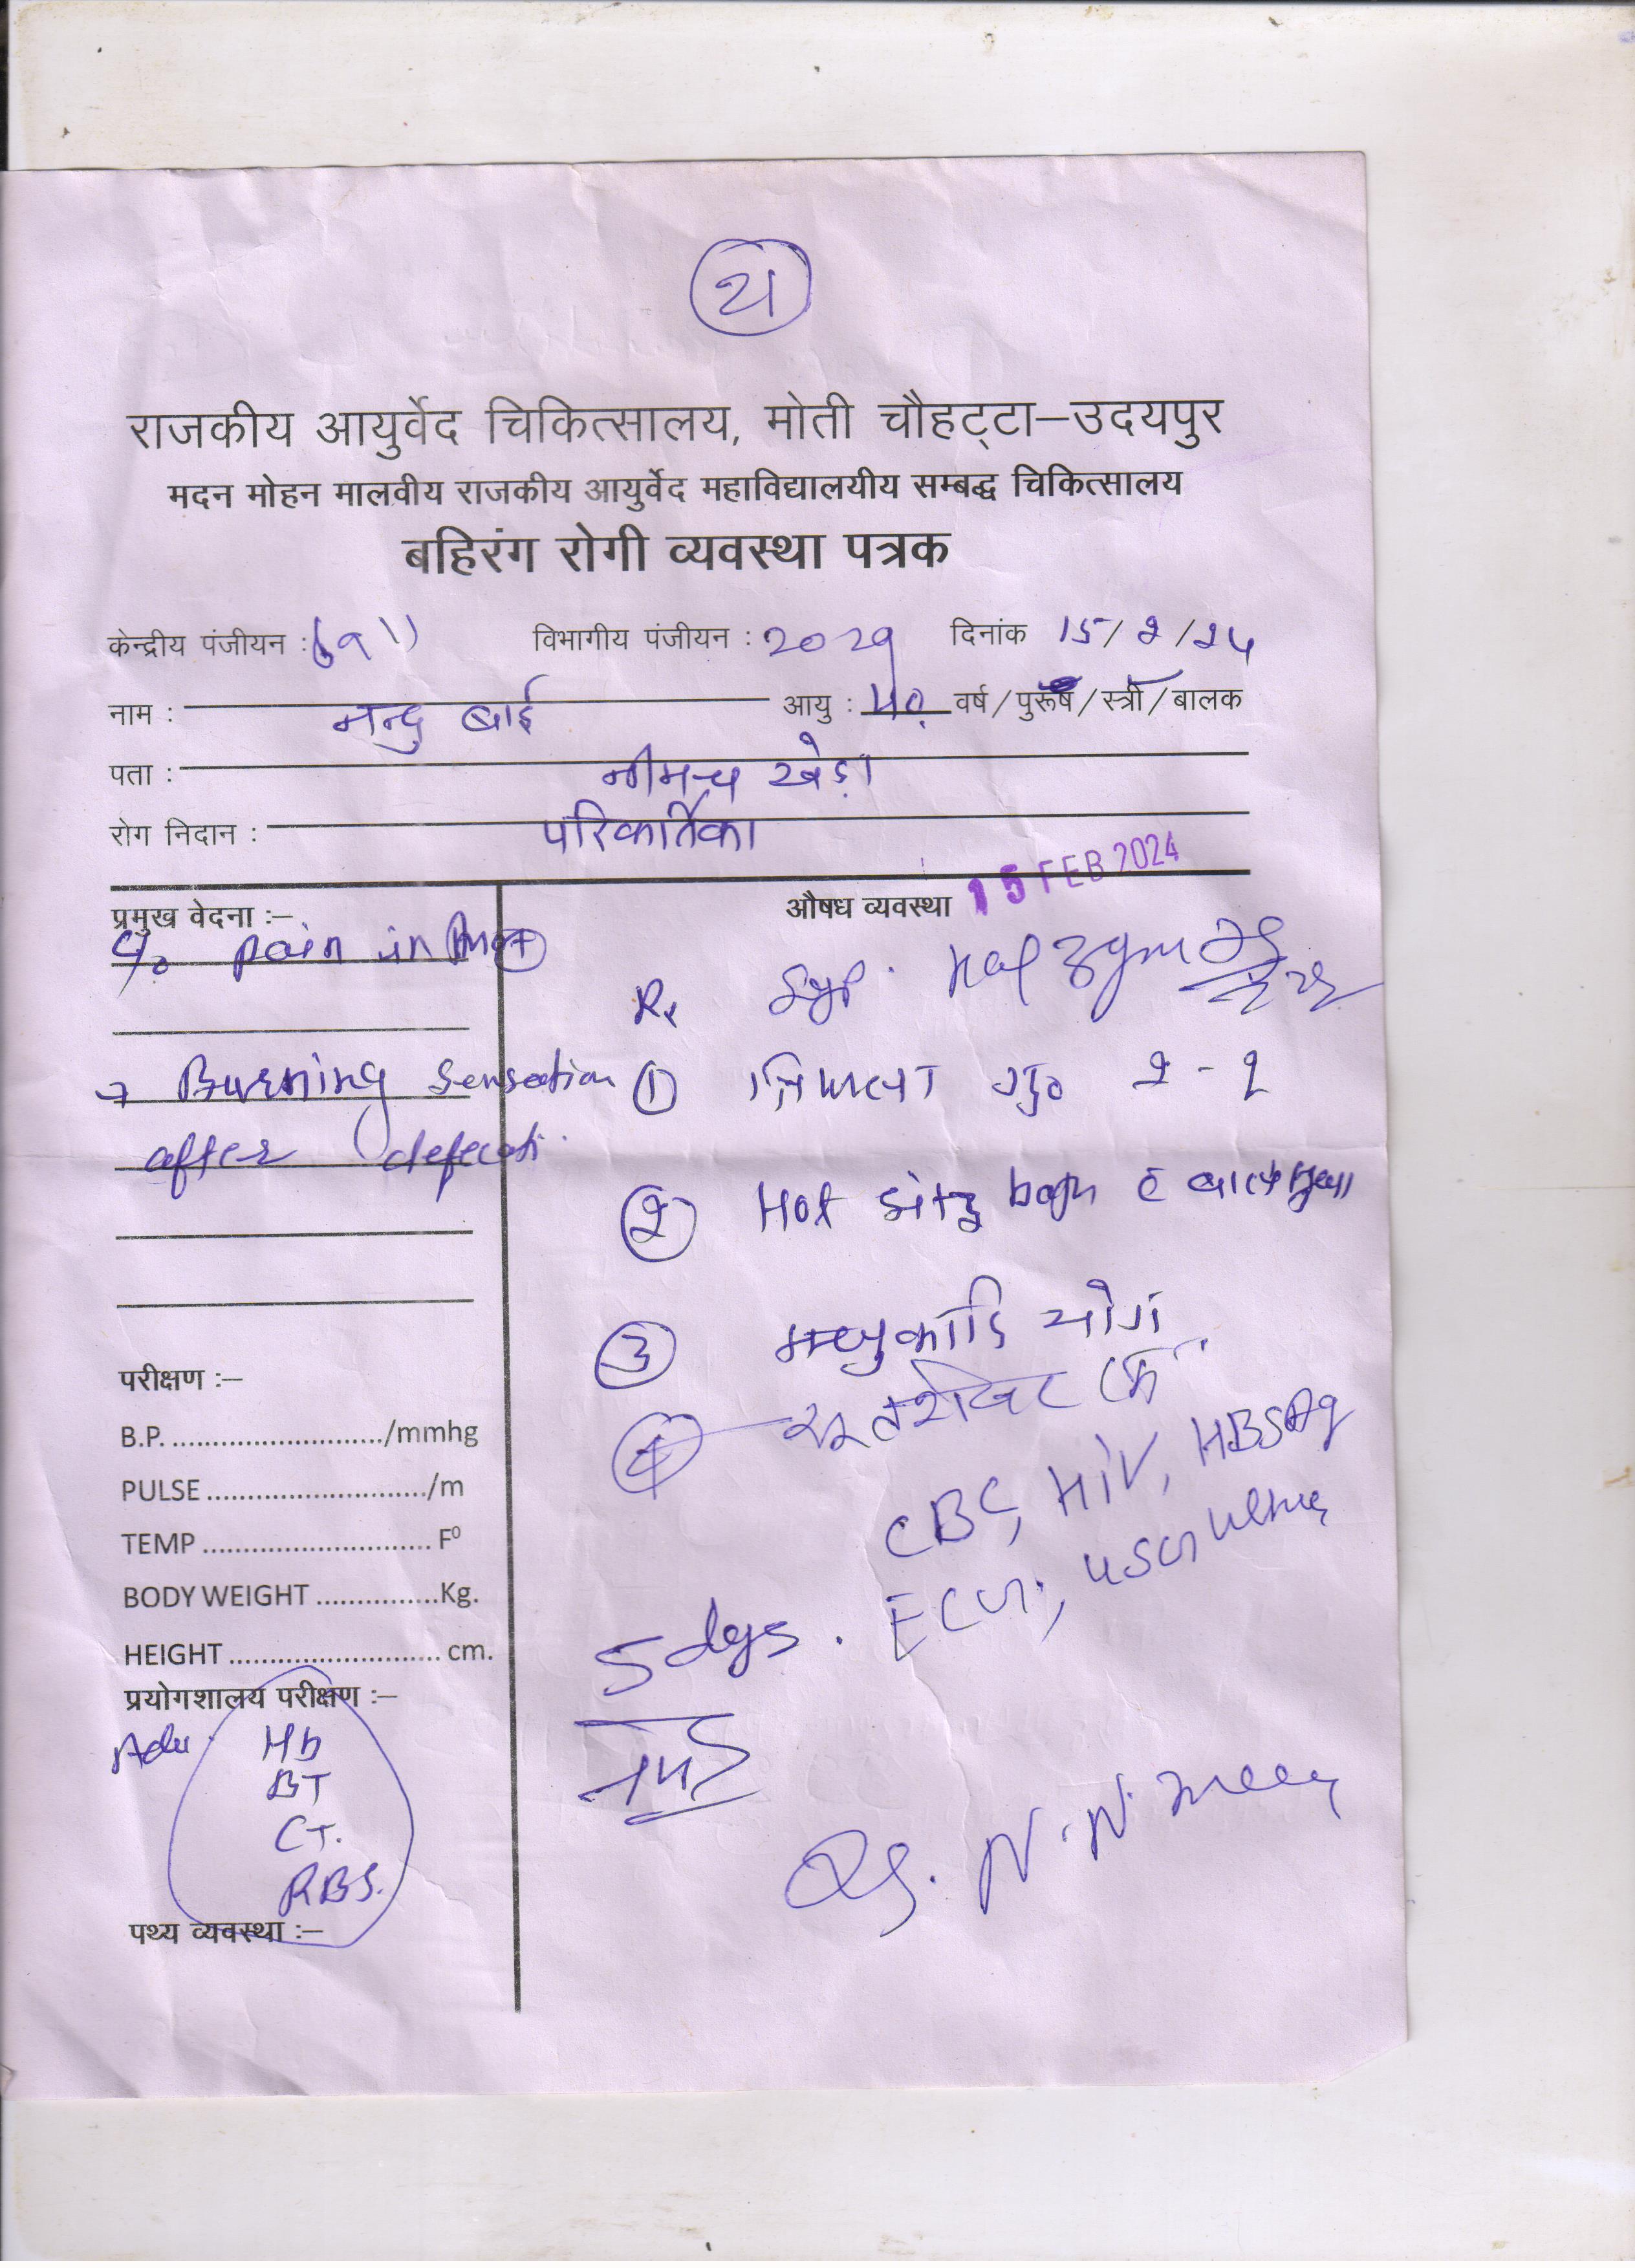 राजकीय आयुर्वेद चिकित्सालय, मोती चौहट्‌टा–उदयपुर
मदन मोहन मालवीय राजकीय आयुर्वेद महाविद्यालयीय सम्बद्ध चिकित्सालय
बहिरंग रोगी व्यवस्था पत्रक
केन्द्रीय पंजीयन : विभागीय पंजीयन : 2029 दिनांक 15/2/24
नाम : बाई आयु : 40 वर्ष/पुरूष/स्त्री/बालक
पता : नीमच खेड़ा
रोग निदान : परिकर्तिका
15 FEB 2024
प्रमुख वेदना :– औषध व्यवस्था
C/o pain in
Rx Syp.
→ Burning Sensation ① त्रिफला गु० 2 - 2
after defecati.
② Hot sitz bath c̄
③ योग
परीक्षण :–
④
B.P. ........................../mmhg
CBC, HIV, HBSAg
PULSE .........................../m
TEMP ........................... F⁰
ECG,
BODY WEIGHT ...............Kg.
5 days.
HEIGHT .......................... cm.
प्रयोगशालय परीक्षण :–
Adv. Hb
BT
CT.
RBS.
Dr. N.N. Meena
पथ्य व्यवस्था :–